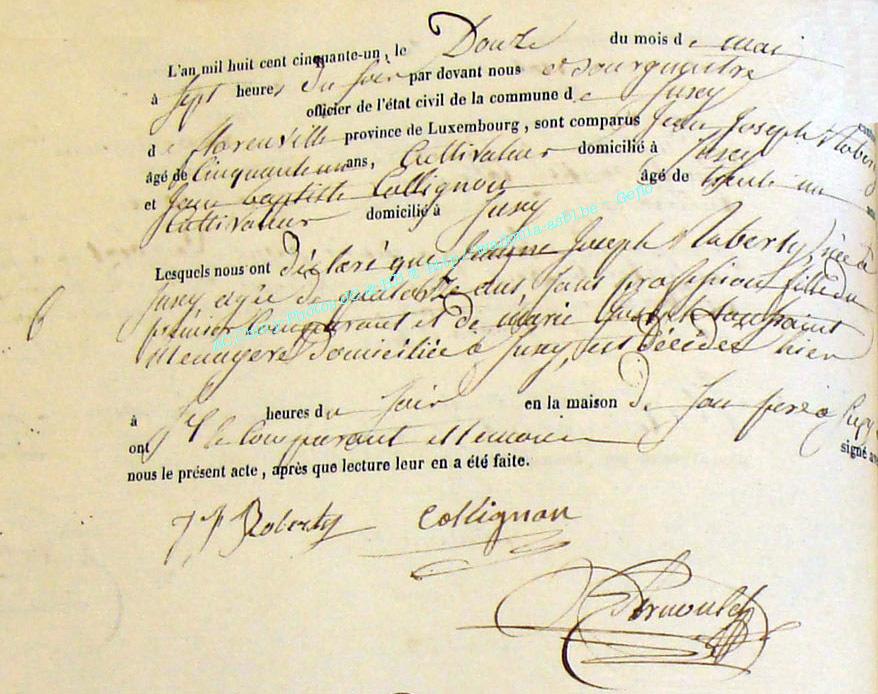 L'an mil huit cent cinquante-un, le Douze du mois d e mai
à Sept heures du Soir par devant nous Bourgmestre
officier de l'état civil de la commune d e Jusey
d e florenville province de Luxembourg, sont comparus Jean Joseph Roberty
âgé de Cinquante un ans, Cultivateur domicilié à Jusey
et Jean baptiste Collignon âgé de trente un
Cultivateur domicilié à Jusey
Lesquels nous ont déclaré que Joseph Roberty, née à
Jusey agée de quatorze ans sans profession fille du
premier Comparant et de marie toussaint
Menagere domiciliée a Jusey, est décidée hier
à heures du Soir en la maison de Son pere a Jusey
ont le Comparant et temoin signé
nous le présent acte, après que lecture leur en a été faite.
6
J J Roberty Collignon